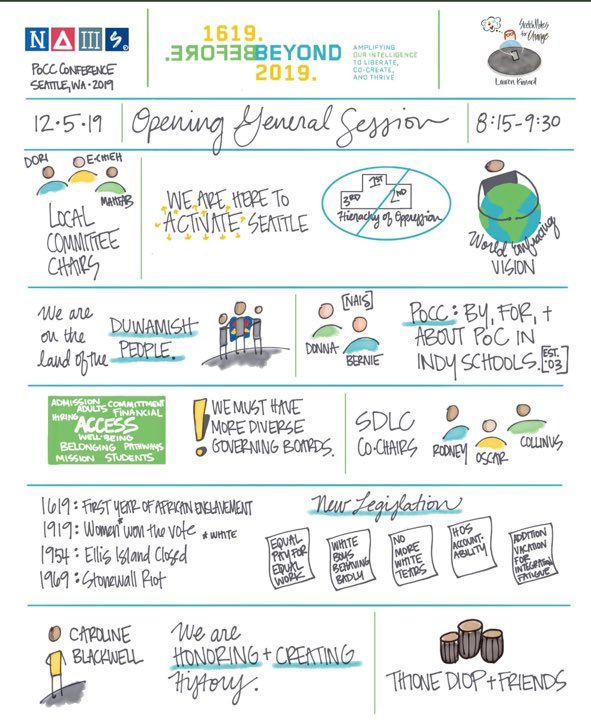 NAIS
PoCC CONFERENCE
SEATTLE, WA • 2019
1619.
BEFORE. BEYOND
2019.
AMPLIFYING
OUR INTELLIGENCE
TO LIBERATE,
CO-CREATE,
AND THRIVE
SketchNotes
for
Change
Lauren Kinnard
12.5.19
Opening General Session
8:15-9:30
DORI
E-CHIEH
MAHTAB
LOCAL
COMMITTEE
CHAIRS
WE ARE HERE TO
ACTIVATE SEATTLE
1ST
2ND
3RD
Hierachy of Oppression
World Embracing
VISION
We are
on the
land of the
DUWAMISH
PEOPLE.
[NAIS]
DONNA
BERNIE
PoCC: BY, FOR, +
ABOUT PoC IN
INDY SCHOOLS.
[EST.
'03]
ADMISSION
ADULTS COMMITTMENT
HIRING FINANCIAL
ACCESS
WELL-BEING
BELONGING PATHWAYS
MISSION STUDENTS
! WE MUST HAVE
MORE DIVERSE
GOVERNING BOARDS.
SDLC
CO-CHAIRS
RODNEY
OSCAR
COLLINUS
1619: FIRST YEAR OF AFRICAN ENSLAVEMENT
1919: Women* won the vote * WHITE
1954: Ellis Island Closed
1969: Stonewall Riot
New Legislation
EQUAL
PAY FOR
EQUAL
WORK
WHITE
BOYS
BEHAVING
BADLY
NO
MORE
WHITE
TEARS
HOS
ACCOUNT-
ABILITY
ADDITION
VACATION
FOR
INTEGRATION
FATIGUE
CAROLINE
BLACKWELL
We are
HONORING + CREATING
History.
THIONE DIOP + FRIENDS